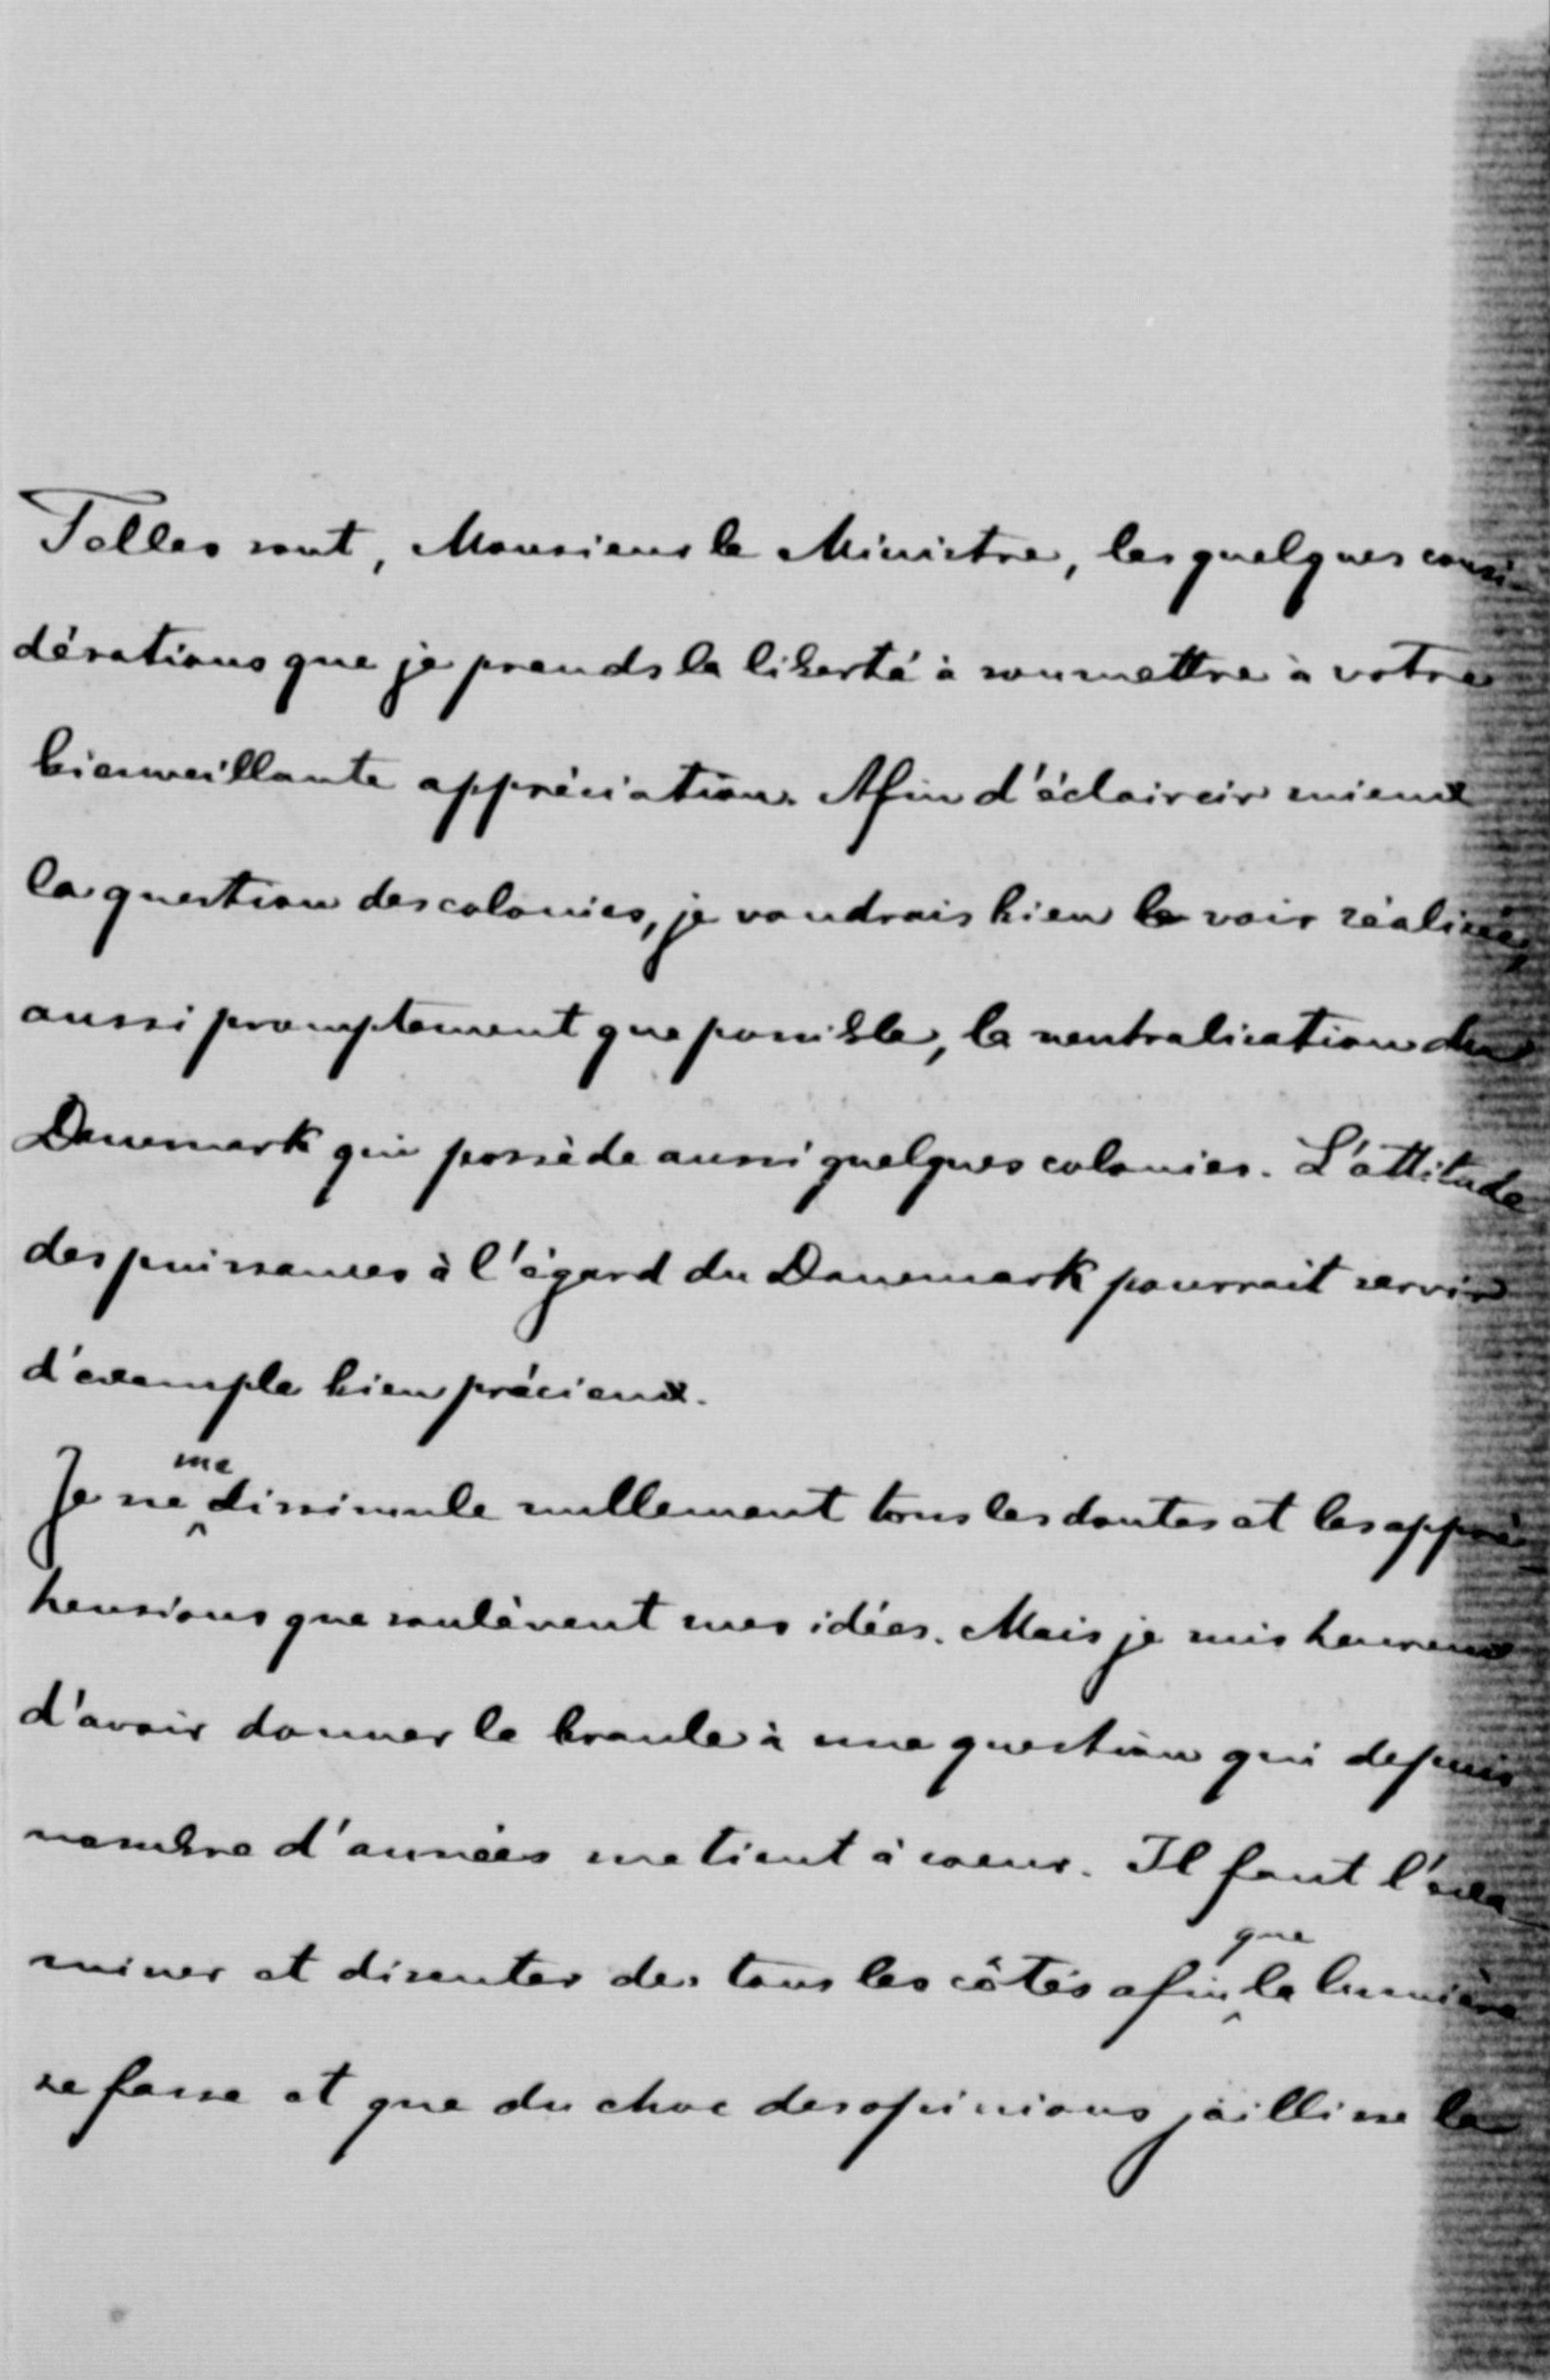 Telles sont, Monsieur le Ministre, les quelques consi-
dérations que je prends la liberté à soumettre à votre
bienveillante appréciation. Afin d'éclaircir mieux
la question des colonies, je voudrais bien la voir réalisée,
aussi promptement que possible, la neutralisation du
Danemark qui possède aussi quelques colonies. L'attitude
des puissances à l'égard du Danemark pourrait servir
d'exemple bien précieux.
Je ne me dissimule nullement tous les doutes et les appré-
hensions que soulèvent mes idées. Mais je suis heureux
d'avoir donner le branle à une question qui depuis
nombre d'années me tient à coeur. Il faut l'exa-
miner et discuter de tous les côtés afin que la lumière
se fasse et que du choc des opinions jaillisse la